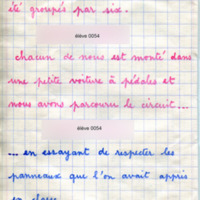 été groupés par six.
élève 0054
chacun de nous est monté dans
une petite voiture à pédales et
nous avons parcouru le circuit...
élève 0054
... en essayant de respecter les
panneaux que l'on avait appris
en classe